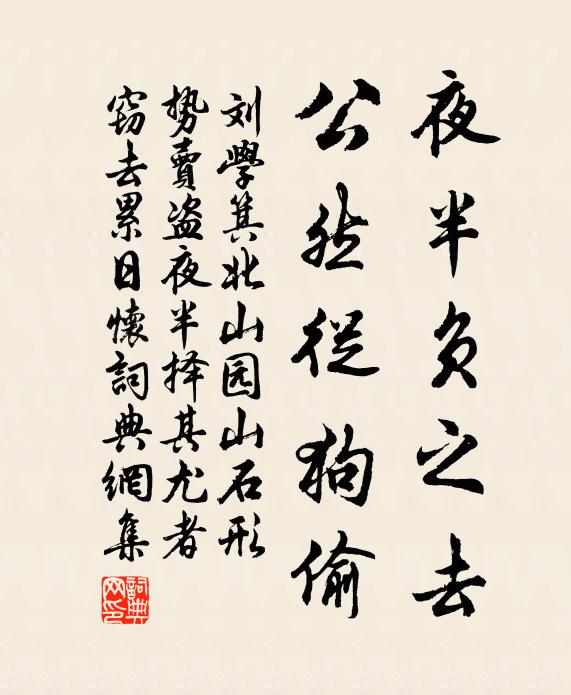 夜半负之去
公然從狗偷
刘學箕北山园山石形
势賣盗夜半择其尤者
窃去累日懷詞典網集
詞典
网印